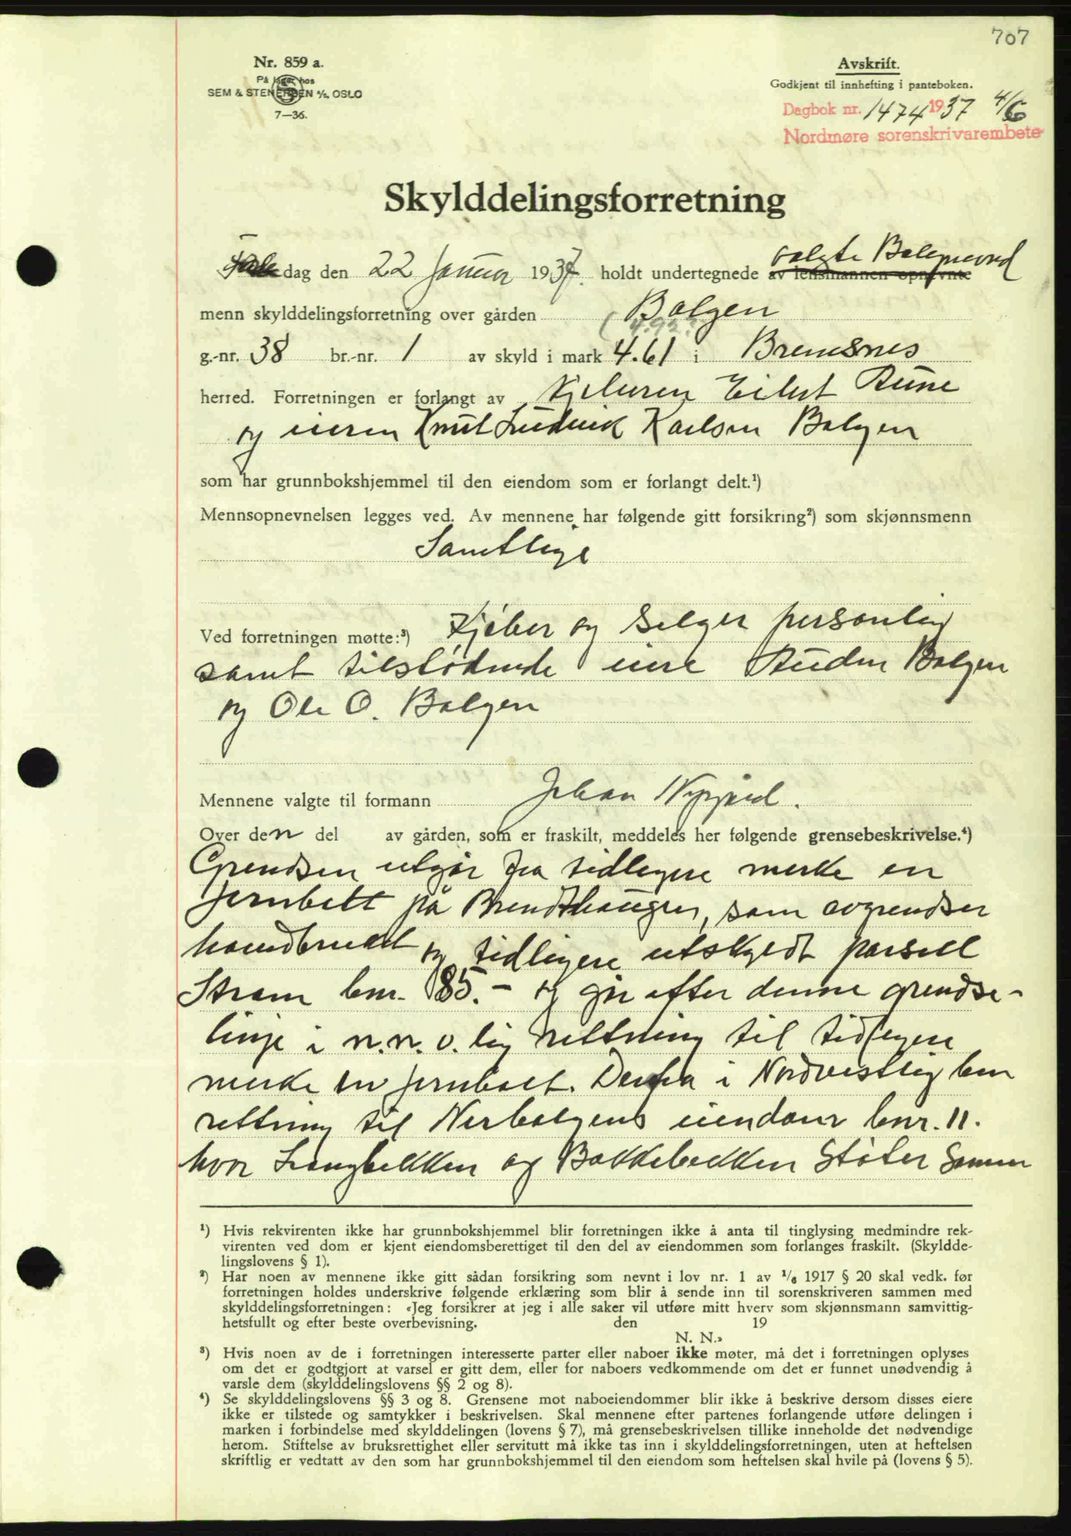 707
Nr. 859 a.
På lager hos
SEM & STENERSEN A/S, OSLO
7—36.
Avskrift.
Godkjent til innhefting i panteboken.
Dagbok nr. 1474 1937 4/6
Nordmøre sorenskrivarembete
Skylddelingsforretning
dag den 22 Januar 1937. holdt undertegnede av lensmannen opnevnte valgte
menn skylddelingsforretning over gården Bolgen
(4.92?)
g.-nr. 38 br.-nr. 1 av skyld i mark 4.61 i Bremsnes
herred. Forretningen er forlangt av Kjøberen Eilert Aune
og eieren Knut Ludvik Karlsen Bolgen
som har grunnbokshjemmel til den eiendom som er forlangt delt.¹)
Mennsopnevnelsen legges ved. Av mennene har følgende gitt forsikring²) som skjønnsmenn
Samtlige
Ved forretningen møtte:³) Kjøber og Selger personlig
samt tilstødende eiere Auden Bolgen
og Ole O. Bolgen
Mennene valgte til formann Johan Nygård.
Over den del av gården, som er fraskilt, meddeles her følgende grensebeskrivelse.⁴)
Grendsen utgår fra tidligere merke en
Jernbolt på Brendthaugen, som avgrendser
hovedbruket og tidligere utskyldt parsell
Strøm bnr. 85.- og går efter denne grendse-
linje i n.n.v. lig rettning til tidligere
merke en jernbolt. Derfra i Nordvestlig
rettning til Nerbolgens eiendom bnr. 11.
hvor Langbekken og Bakkebekken Støter Sammen
¹) Hvis rekvirenten ikke har grunnbokshjemmel blir forretningen ikke å anta til tinglysing medmindre rek-
virenten ved dom er kjent eiendomsberettiget til den del av eiendommen som forlanges fraskilt. (Skyldde-
lingslovens § 1).
²) Har noen av mennene ikke gitt sådan forsikring som nevnt i lov nr. 1 av 1/6 1917 § 20 skal vedk. før
forretningen holdes underskrive følgende erklæring som blir å sende inn til sorenskriveren sammen med
skylddelingsforretningen: «Jeg forsikrer at jeg i alle saker vil utføre mitt hverv som skjønnsmann samvittig-
hetsfullt og efter beste overbevisning. den 19
N. N.»
³) Hvis noen av de i forretningen interesserte parter eller naboer ikke møter, må det i forretningen oplyses
om det er godtgjort at varsel er gitt dem, eller for naboers vedkommende om det er funnet unødvendig å
varsle dem (skylddelingslovens §§ 2 og 8).
⁴) Se skylddelingslovens §§ 3 og 8. Grensene mot naboeiendommer blir ikke å beskrive dersom disses eiere
ikke er tilstede og samtykker i beskrivelsen. Skal mennene efter partenes forlangende utføre delingen i
marken i forbindelse med skylddelingen (lovens § 7), må grensebeskrivelsen tillike inneholde det nødvendige
herom. Stiftelse av bruksrettighet eller servitutt må ikke tas inn i skylddelingsforretningen, uten at heftelsen
skriftlig er vedtatt av den som har grunnbokshjemmel til den eiendom som heftelsen skal hvile på (lovens § 5).